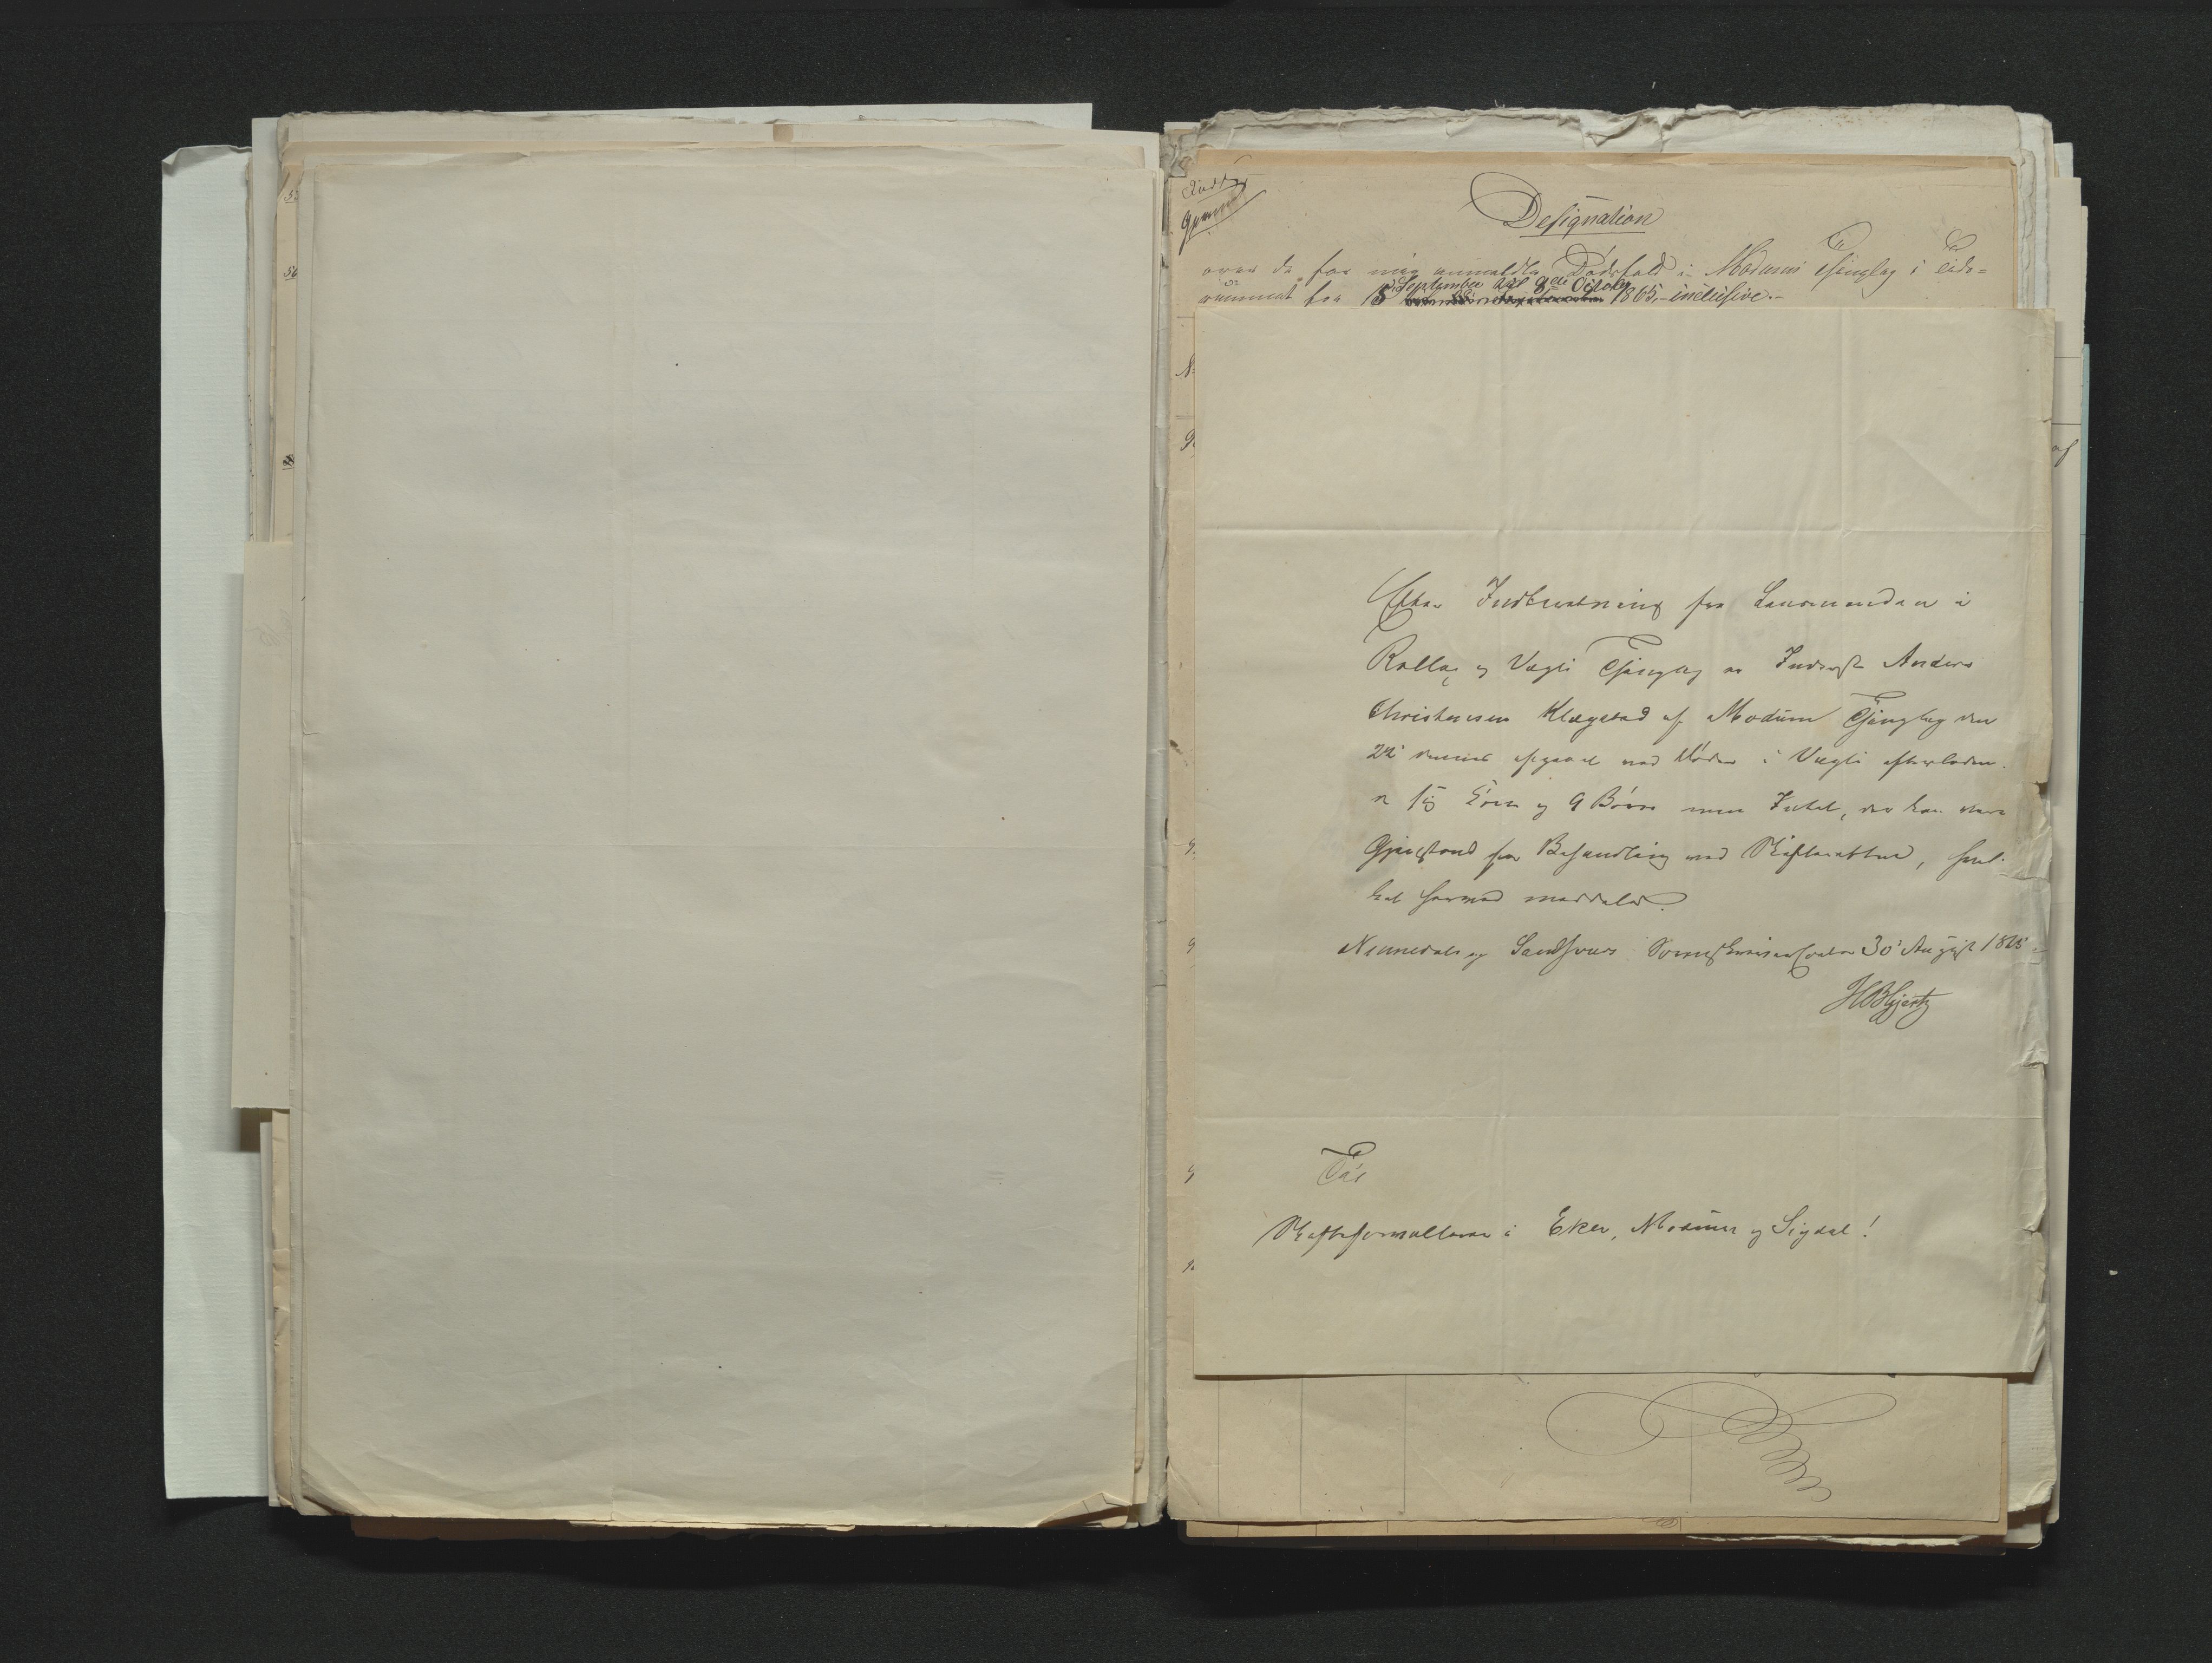 Designation
over de for mig anmeldte Dødsfald i Modums Thinglag i Tids-
rummet fra 15 September til 8de October 1865, inclusive.-
Efter Indberetning fra Lensmanden i
Rollag og Vægli Thinglag er Inderst Anders
Christensen Klægstad af Modum Thinglag den
22' dennes afgaaet ved Døden i Vægli efterladen-
de sig Kone og 9 Børn men Intet, der kan være
Gjenstand for Behandling ved Skifteretten, hvil-
ket herved meddeles.
Nummedals og Sandsværs Sorenskriverembede 30' August 1865
HBHjertz
Til
Skifteforvalteren i Eker, Modum og Sigdal!